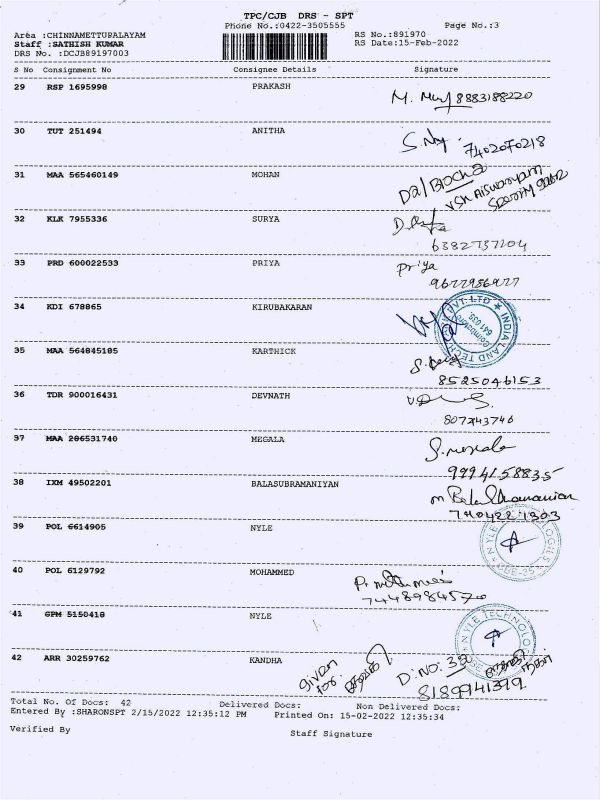 TPC/CJB DRS - SPT
Phone No.:0422-3505555 Page No.:3
Area :CHINNAMETTUPALAYAM RS No.:891970
Staff :SATHISH KUMAR RS Date:15-Feb-2022
DRS No. :DCJB89197003
S No Consignment No Consignee Details Signature
29 RSP 1695998 PRAKASH
8883188220
30 TUT 251494 ANITHA
7402070218
31 MAA 565460149 MOHAN
32 KLK 7955336 SURYA
33 PRD 600022533 PRIYA Priya
34 KDI 678865 KIRUBAKARAN
INDIA LAND TECH PVT. LTD
Coimbatore
641 035
35 MAA 564845185 KARTHICK
8525046153
36 TDR 900016431 DEVNATH
807243746
37 MAA 206531740 MEGALA
9994158835
38 IXM 49502201 BALASUBRAMANIYAN
39 POL 6614905 NYLE
NYLE
40 POL 6129792 MOHAMMED
7448984570
41 GPM 5150418 NYLE
NYLE TECHNOLO
42 ARR 30259762 KANDHA
D.NO:
8189941399
Total No. Of Docs: 42 Delivered Docs: Non Delivered Docs:
Entered By :SHARONSPT 2/15/2022 12:35:12 PM Printed On: 15-02-2022 12:35:34
Verified By Staff Signature